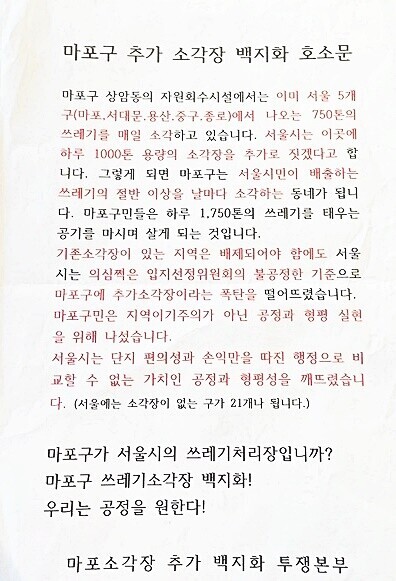 마포구 추가 소각장 백지화 호소문
마포구 상암동의 자원회수시설에서는 이미 서울 5개
구(마포.서대문.용산.중구.종로)에서 나오는 750톤의
쓰레기를 매일 소각하고 있습니다. 서울시는 이곳에
하루 1000톤 용량의 소각장을 추가로 짓겠다고 합
니다. 그렇게 되면 마포구는 서울시민이 배출하는
쓰레기의 절반 이상을 날마다 소각하는 동네가 됩니
다. 마포구민들은 하루 1,750톤의 쓰레기를 태우는
공기를 마시며 살게 되는 것입니다.
기존소각장이 있는 지역은 배제되어야 함에도 서울
시는 의심쩍은 입지선정위원회의 불공정한 기준으로
마포구에 추가소각장이라는 폭탄을 떨어뜨렸습니다.
마포구민은 지역이기주의가 아닌 공정과 형평 실현
을 위해 나섰습니다.
서울시는 단지 편의성과 손익만을 따진 행정으로 비
교할 수 없는 가치인 공정과 형평성을 깨뜨렸습니
다. (서울에는 소각장이 없는 구가 21개나 됩니다.)
마포구가 서울시의 쓰레기처리장입니까?
마포구 쓰레기소각장 백지화!
우리는 공정을 원한다!
마포소각장 추가 백지화 투쟁본부